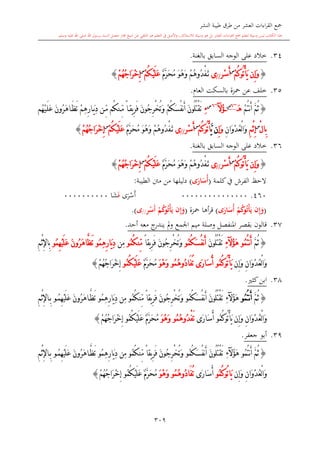 جمع القراءات العشر من طرق طيبة النشر
٣٤. خلاد على الوجه السابق بالغنة.
﴿ وَإِن يَأْتُوكُمْ أَسْرَىٰ تَفْدُوهُمْ وَهُوَ مُحَرَّمٌ عَلَيْكُمْ إِخْرَاجُهُمْ ﴾
٣٥. خلف عن حمزة بالسكت العام.
﴿ ثُمَّ أَنتُمْ هَٰؤُلَاءِ تَقْتُلُونَ أَنفُسَكُمْ وَتُخْرِجُونَ فَرِيقًا مِّنكُم مِّن دِيَارِهِمْ تَظَاهَرُونَ عَلَيْهُم
بِالْإِثْمِ وَالْعُدْوَانِ وَإِن يَأْتُوكُمْ أَسْرَىٰ تَفْدُوهُمْ وَهُوَ مُحَرَّمٌ عَلَيْكُمْ إِخْرَاجُهُمْ ﴾
٣٦. خلاد على الوجه السابق بالغنة.
﴿ وَإِن يَأْتُوكُمْ أَسْرَىٰ تَفْدُوهُمْ وَهُوَ مُحَرَّمٌ عَلَيْكُمْ إِخْرَاجُهُمْ ﴾
لاحظ الفرش في كلمة (أَسَارَى) دليلها من متن الطيبة:
٤٦٠. .............. أَسْرَى فَشَا ..........
(وَإِن يَأْتُوكُمْ أُسَارَى) قرأها حمزة (وَإِن يَأْتُوكُمْ أَسْرَىٰ).
٣٧. قالون بقصر المنفصل وصلة ميم الجمع ولم يندرج معه أحد.
﴿ ثُمَّ أَنتُمُو هَٰؤُلَاءِ تَقْتُلُونَ أَنفُسَكُمُو وَتُخْرِجُونَ فَرِيقًا مِّنكُمُو مِن دِيَارِهِمُو تَظَّاهَرُونَ عَلَيْهِمُو بِالْإِثْمِ
وَالْعُدْوَانِ وَإِن يَأْتُوكُمُو أُسَارَى تُفَادُوهُمُو وَهْوَ مُحَرَّمٌ عَلَيْكُمُو إِخْرَاجُهُمْ ﴾
٣٨. ابن كثير.
﴿ ثُمَّ أَنتُمُو هَٰؤُلَاءِ تَقْتُلُونَ أَنفُسَكُمُو وَتُخْرِجُونَ فَرِيقًا مِّنكُمُو مِن دِيَارِهِمُو تَظَّاهَرُونَ عَلَيْهِمُو بِالْإِثْمِ
وَالْعُدْوَانِ وَإِن يَأْتُوكُمُو أُسَارَى تَفْدُوهُمُو وَهُوَ مُحَرَّمٌ عَلَيْكُمُو إِخْرَاجُهُمْ ﴾
٣٩. أبو جعفر.
﴿ ثُمَّ أَنتُمُو هَٰؤُلَاءِ تَقْتُلُونَ أَنفُسَكُمُو وَتُخْرِجُونَ فَرِيقًا مِّنكُمُو مِن دِيَارِهِمُو تَظَّاهَرُونَ عَلَيْهِمُو بِالْإِثْمِ
وَالْعُدْوَانِ وَإِن يَاتُوكُمُو أُسَارَى تُفَادُوهُمُو وَهْوَ مُحَرَّمٌ عَلَيْكُمُو إِخْرَاجُهُمْ ﴾
٣٠٩